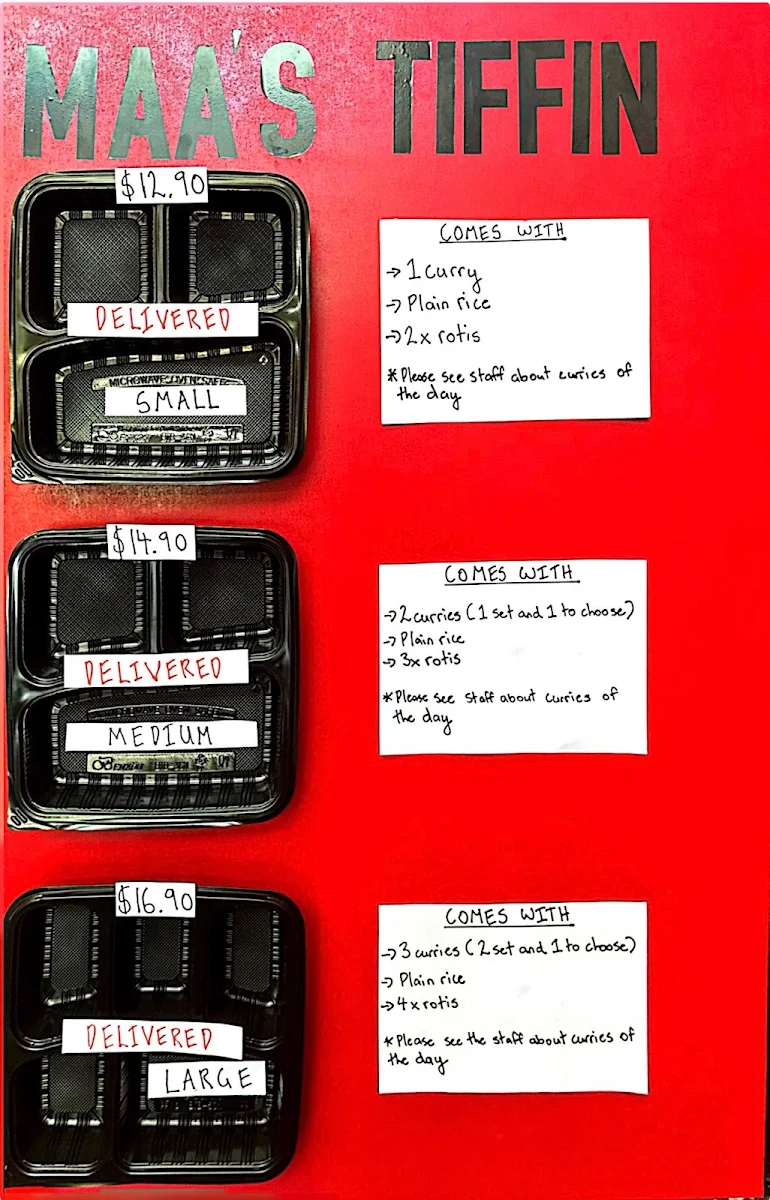 MAA'S TIFFIN
$12.90
DELIVERED
MICROWAVE OVEN SAFE
SMALL
COMES WITH
→ 1 curry
→ Plain rice
→ 2x rotis
* Please see staff about curries of
the day
$14.90
DELIVERED
MEDIUM
COMES WITH
→ 2 curries (1 set and 1 to choose)
→ Plain rice
→ 3x rotis
* Please see staff about curries of
the day
$16.90
DELIVERED
LARGE
COMES WITH
→ 3 curries (2 set and 1 to choose)
→ Plain rice
→ 4x rotis
* Please see the staff about curries of
the day